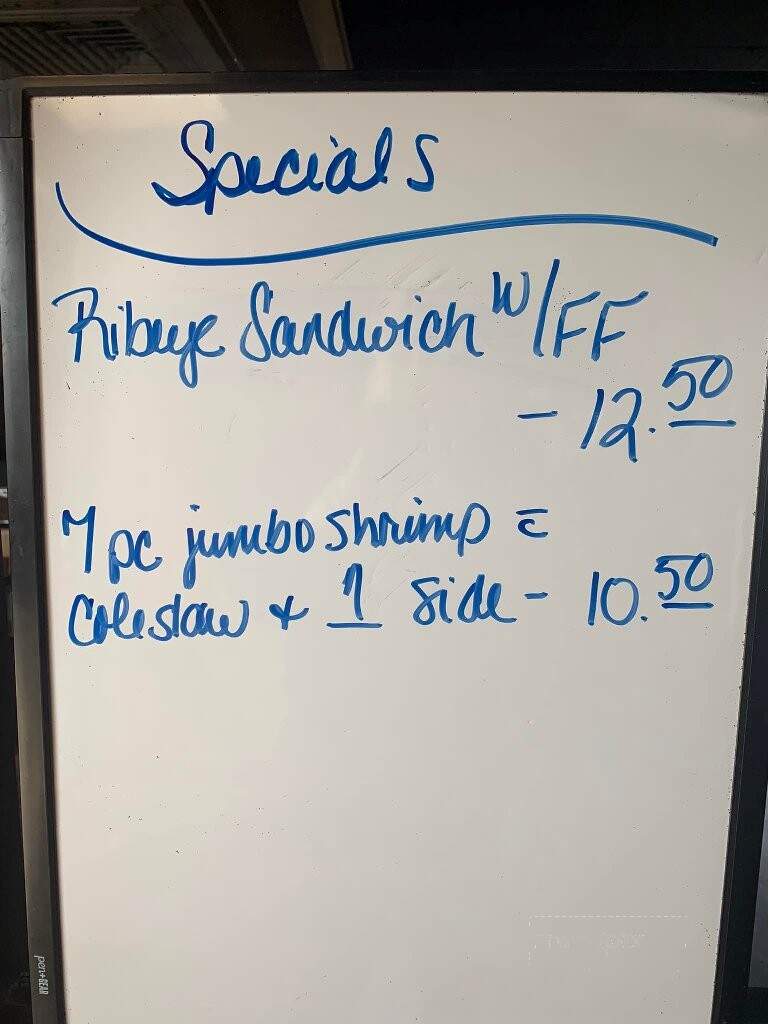 Specials
Ribeye Sandwich w/FF
- 12.50
7 pc jumbo shrimp c̄
Coleslaw & 1 side - 10.50
pen+GEAR